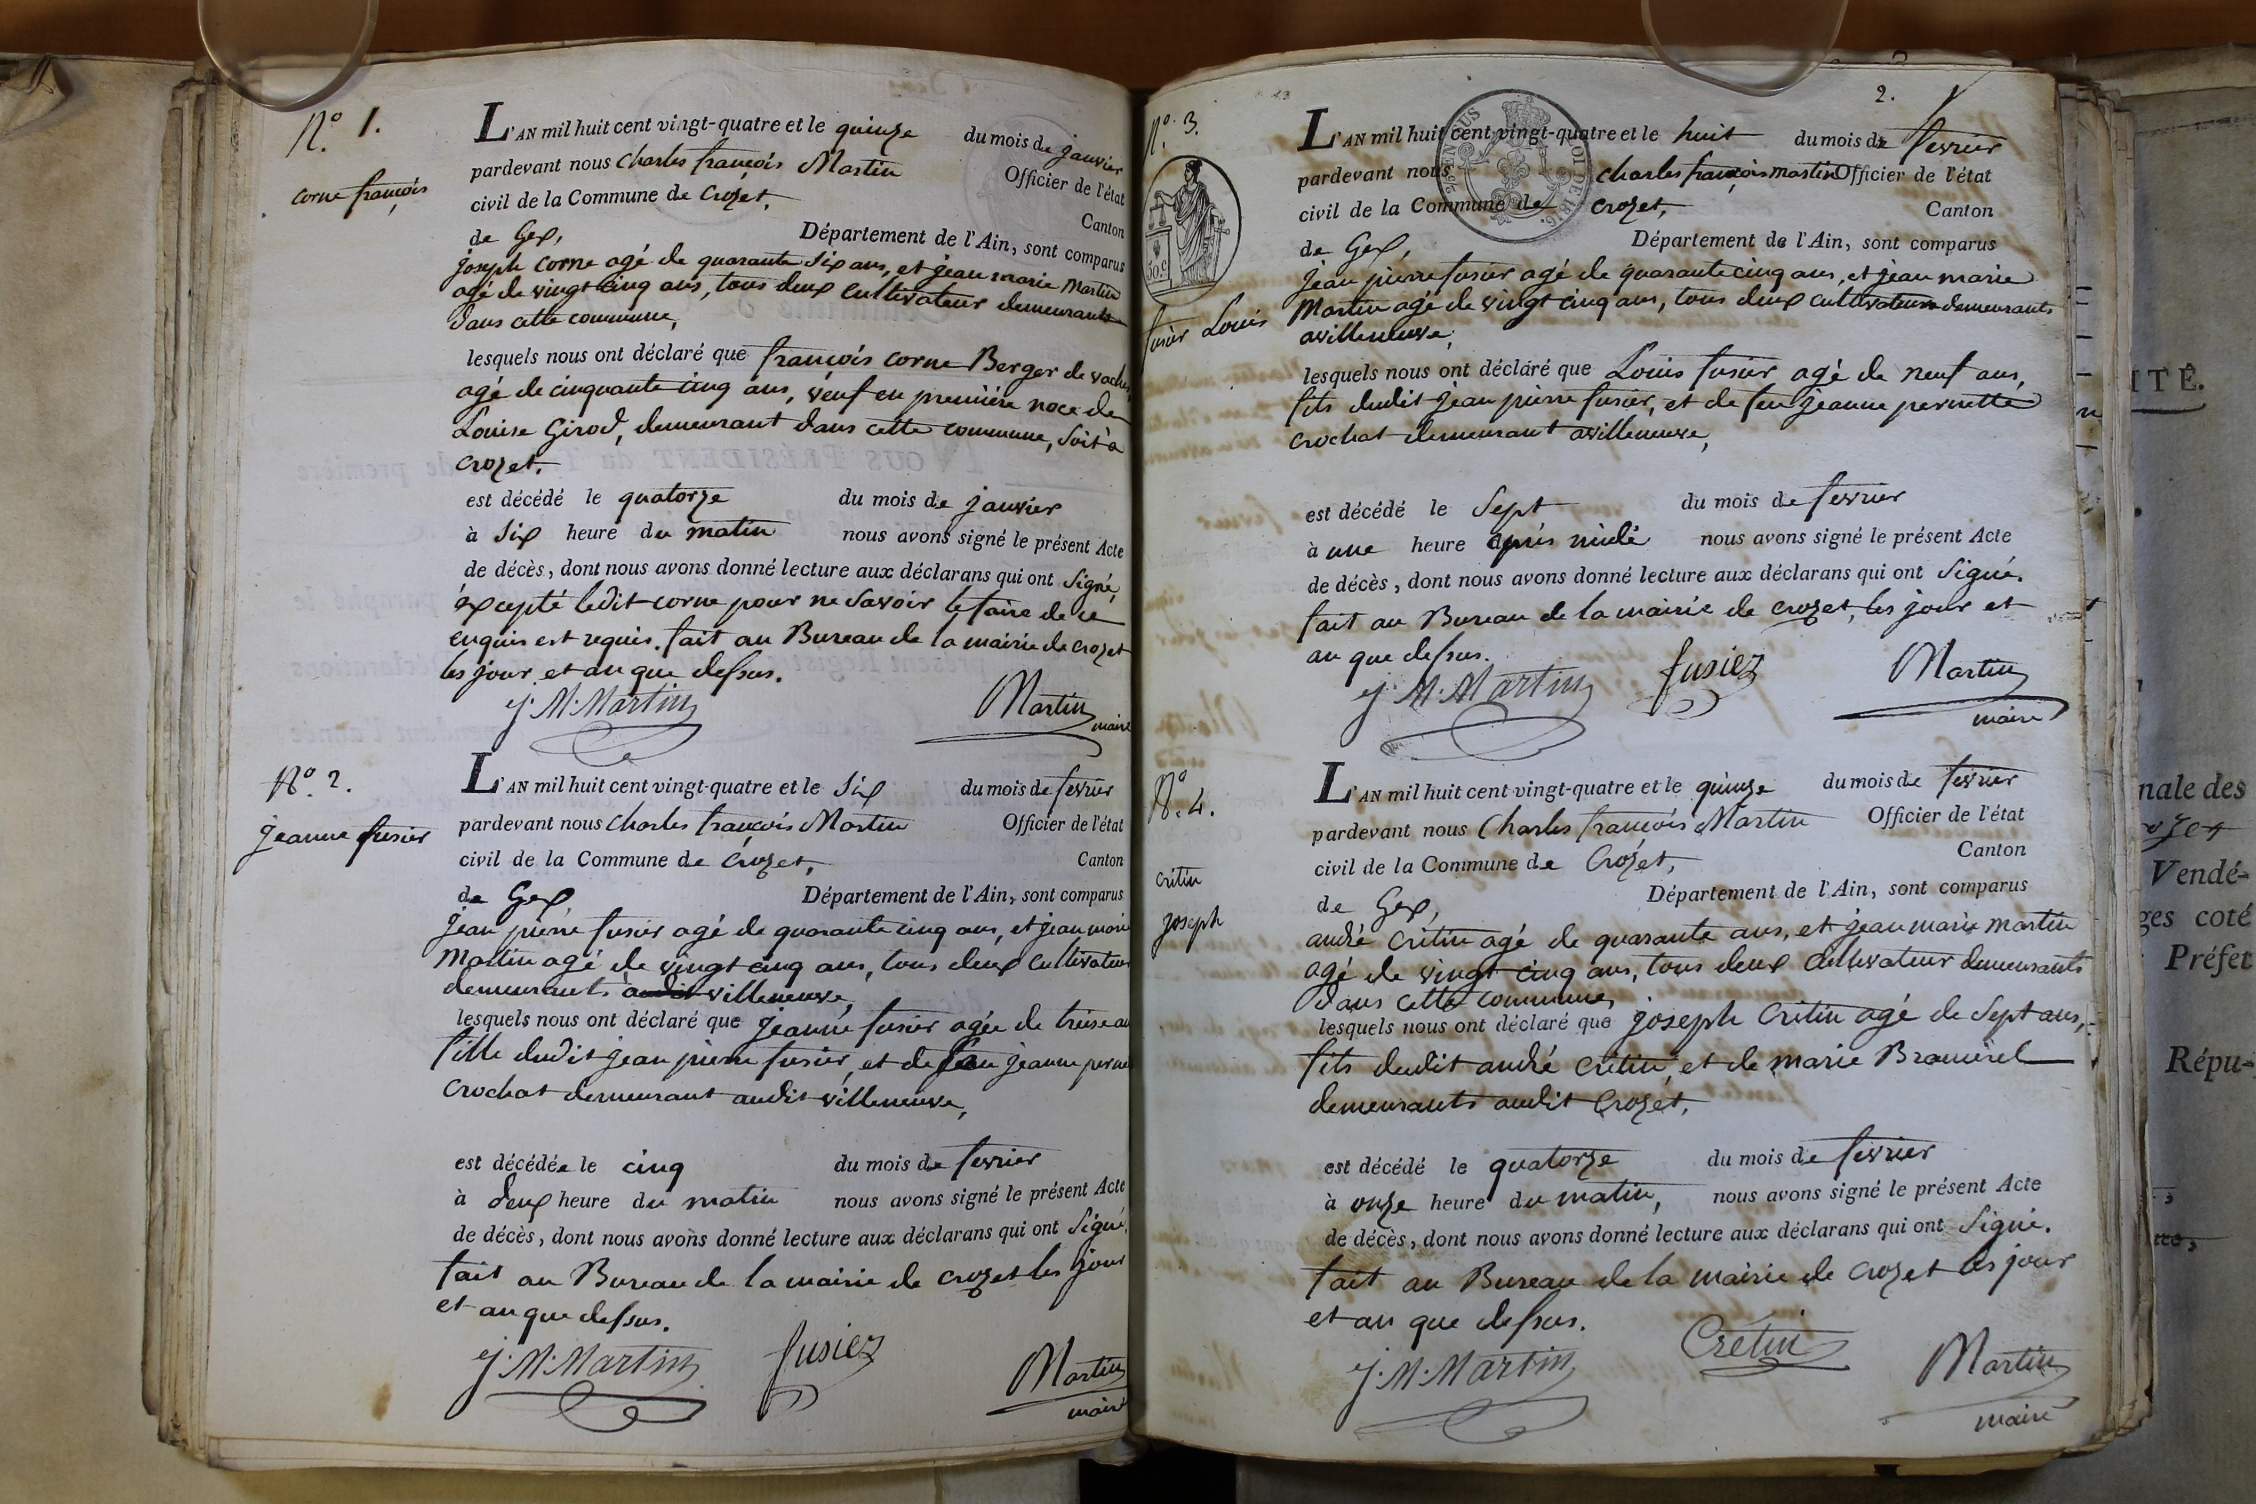 N.º 1.
corne françois
L'AN mil huit cent vingt-quatre et le quinze du mois de janvier
pardevant nous Charles françois Martin Officier de l'état
civil de la Commune de Crozet, Canton
de Gex, Département de l'Ain, sont comparus
joseph corne agé de quarante six ans, et jean marie Martin
agé de vingt cinq ans, tous deux cultivateur demeurants
dans cette commune,
lesquels nous ont déclaré que françois corne Berger de vaches
agé de cinquante cinq ans, veuf en première noce de
Louise Girod, demeurant dans cette commune, soit à
crozet.
est décédé le quatorze du mois de janvier
à six heure du matin nous avons signé le présent Acte
de décès, dont nous avons donné lecture aux déclarans qui ont signé,
éxcepté ledit corne pour ne savoir le faire de ce
enquis est requis. fait au Bureau de la mairie de crozet
les jour et an que dessus.
J. M. Martin Martin
maire
N.º 2.
jeanne fusier
L'AN mil huit cent vingt-quatre et le six du mois de fevrier
pardevant nous Charles françois Martin Officier de l'état
civil de la Commune de Crozet, Canton
de Gex Département de l'Ain, sont comparus
jean pierre fusier agé de quarante cinq ans, et jean marie
Martin agé de vingt cinq ans, tous deux cultivateur
demeurants audit villeneuve,
lesquels nous ont déclaré que jeanne fusier agée de treise an
fille dudit jean pierre fusier, et de feu jeanne perne
crochat demeurant audit villeneuve,
est décédée le cinq du mois de fevrier
à deux heure du matin nous avons signé le présent Acte
de décès, dont nous avons donné lecture aux déclarans qui ont signé.
fait au Bureau de la mairie de crozet les jour
et an que dessus.
J. M. Martin fusiez Martin
maire
2.
N.º 3.
50 c
fusier Louis
L'AN mil huit cent vingt-quatre et le huit du mois de fevrier
pardevant nous charles françois martin Officier de l'état
civil de la Commune de crozet, Canton
de Gex, Département de l'Ain, sont comparus
jean pierre fusier agé de quarante cinq ans, et jean marie
Martin agé de vingt cinq ans, tous deux cultivateurs demeurants
avilleneuve,
lesquels nous ont déclaré que Louis fusier agé de neuf ans,
fils dudit jean pierre fusier, et de feu jeanne pernette
crochat demeurant avilleneuve,
est décédé le sept du mois de fevrier
à une heure après midi nous avons signé le présent Acte
de décès, dont nous avons donné lecture aux déclarans qui ont signé.
fait au Bureau de la mairie de crozet, les jour et
an que dessus.
J. M. Martin fusiez Martin
maire
N.º 4.
critin
joseph
L'AN mil huit cent vingt-quatre et le quinze du mois de fevrier
pardevant nous Charles françois Martin Officier de l'état
civil de la Commune de Crozet, Canton
de Gex, Département de l'Ain, sont comparus
andré critin agé de quarante ans, et jean marie martin
agé de vingt cinq ans, tous deux cultivateur demeurants
dans cette commune,
lesquels nous ont déclaré que joseph critin agé de sept ans,
fils dudit andré critin, et de marie Bramerel
demeurants audit Crozet.
est décédé le quatorze du mois de fevrier
à onze heure du matin, nous avons signé le présent Acte
de décès, dont nous avons donné lecture aux déclarans qui ont signé.
fait au Bureau de la mairie de crozet les jour
et an que dessus.
J. M. Martin Crétin Martin
maire
ITÉ.
nale des
Vendé-
ges coté
Préfet
Répu-